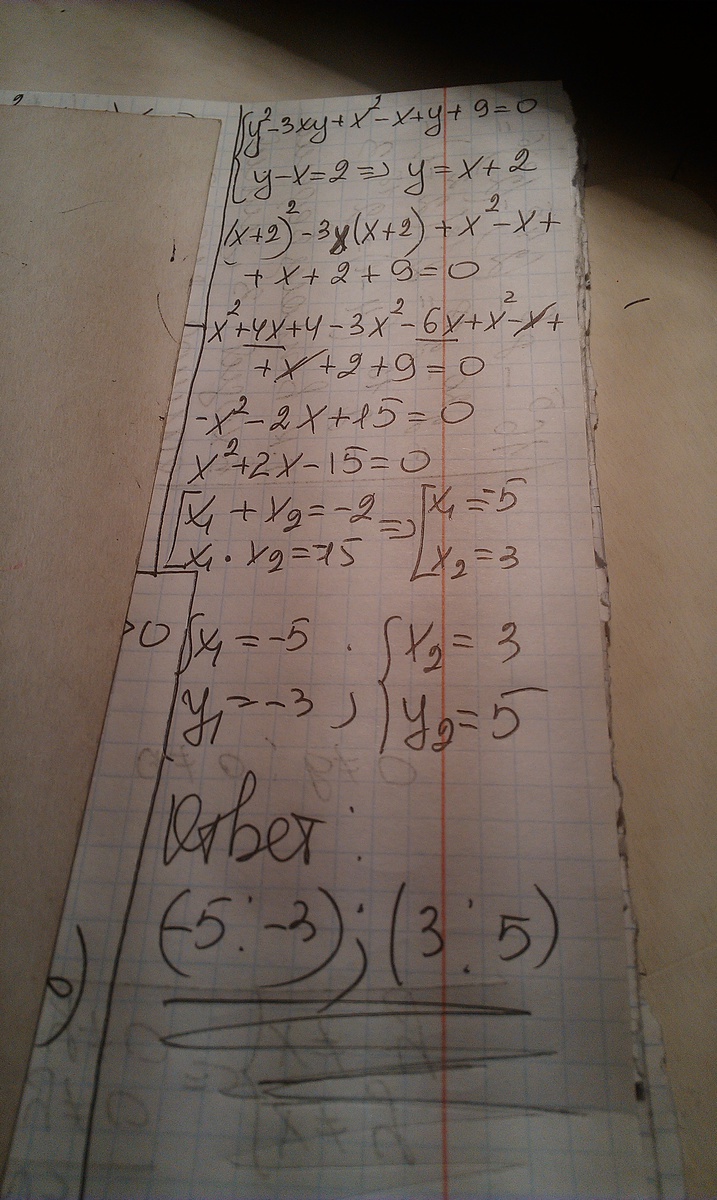 {y² - 3xy + x² - x + y + 9 = 0
{y - x = 2 => y = x + 2
(x+2)² - 3x(x+2) + x² - x +
+ x + 2 + 9 = 0
x² + 4x + 4 - 3x² - 6x + x² - x +
+ x + 2 + 9 = 0
-x² - 2x + 15 = 0
x² + 2x - 15 = 0
[x₁ + x₂ = -2 => [x₁ = -5
[x₁ · x₂ = -15 [x₂ = 3
>0 {x₁ = -5 ; {x₂ = 3
{y₁ = -3 {y₂ = 5
Ответ:
(-5; -3); (3; 5)